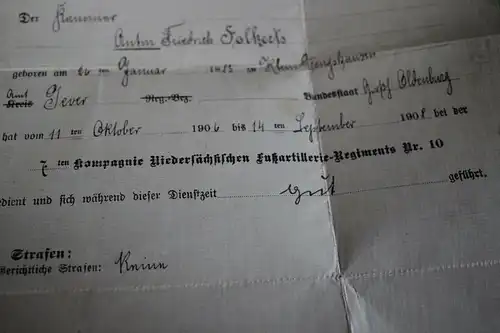 Der Kanonier
Anton Friedrich Folkers
geboren am 26 ten Januar 18 in
Amt Kreis Jever Reg.-Bez. Bundesstaat Großh Oldenburg
hat vom 11 ten Oktober 1906 bis 14 ten September 1908 bei der
7 ten Kompagnie Niedersächsischen Fußartillerie-Regiments Nr. 10
edient und sich während dieser Dienstzeit gut geführt.
Strafen:
Gerichtliche Strafen: Keine